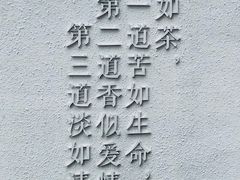 如茶，
一道苦如生命，
第二道香似爱情
第三道淡如